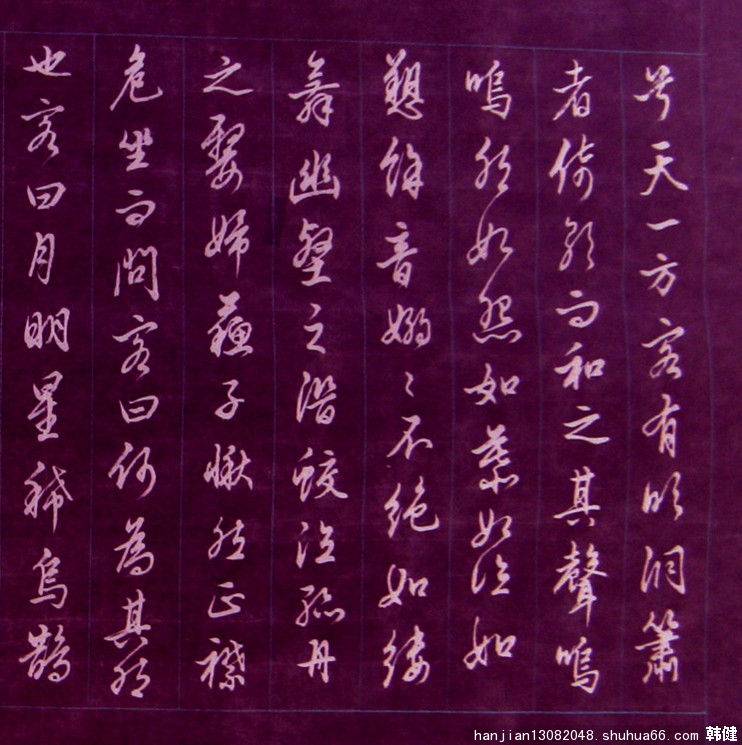 兮天一方客有吹洞簫
者倚歌而和之其聲嗚
嗚然如怨如慕如泣如
愬餘音嫋〻不絕如縷
舞幽壑之潛蛟泣孤舟
之嫠婦蘇子愀然正襟
危坐而問客曰何為其然
也客曰月明星稀烏鵲
hanjian13082048.shuhua66.com 韩健